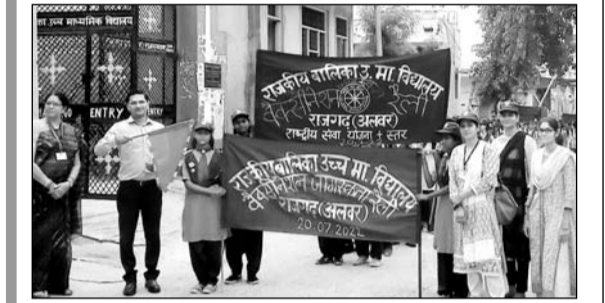 उच्च माध्यमिक विद्यालय
NO ENTRY ENTRY
राजकीय बालिका उ. मा. विद्यालय
रैली
राजगढ़ (अलवर)
राष्ट्रीय सेवा योजना + स्तर
राजकीय बालिका उच्च मा. विद्यालय
वैक्सीनेशन जागरूकता रैली
राजगढ़ (अलवर)
20.07.2022